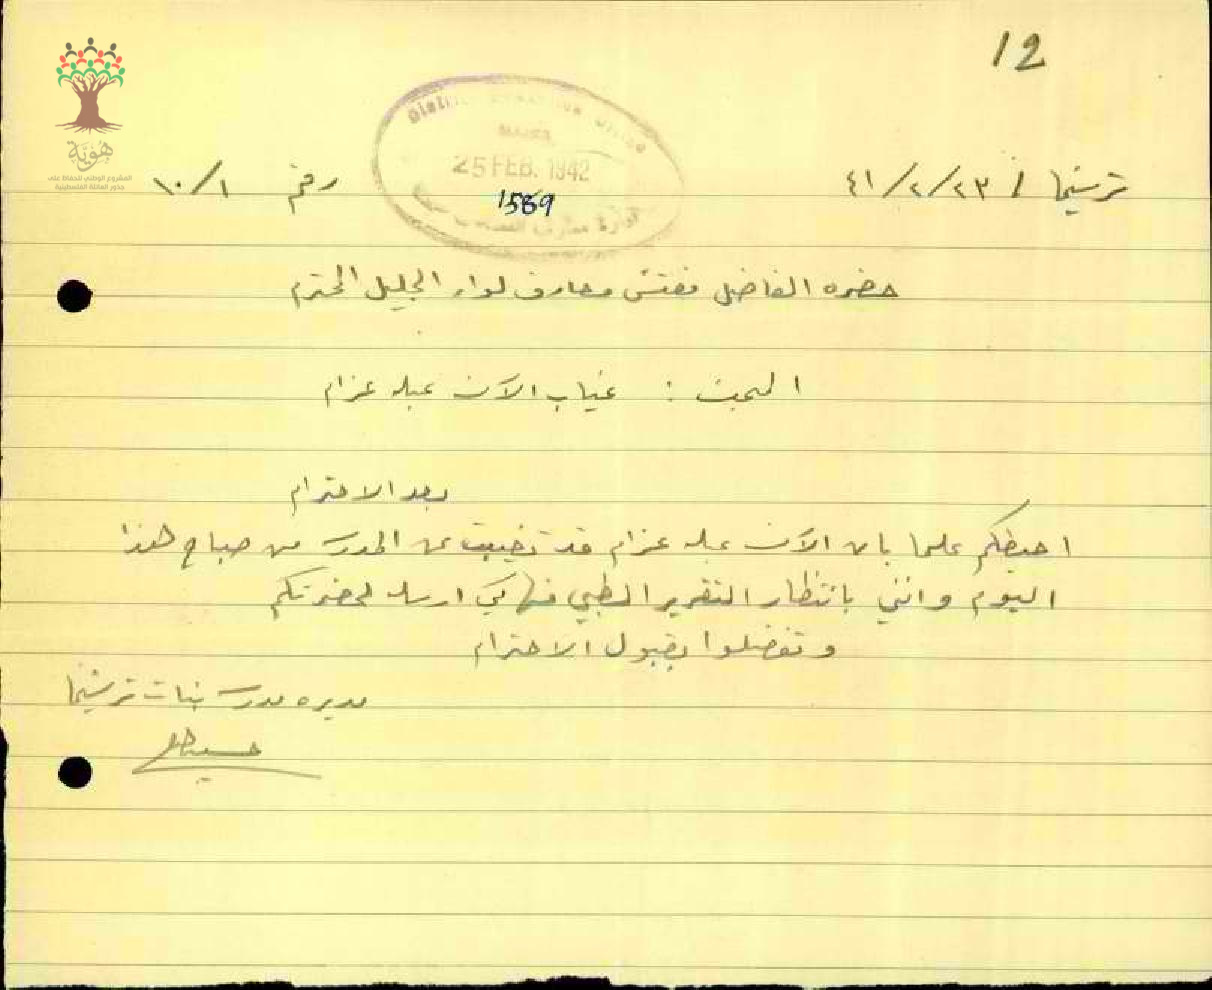 12
هُوِيَّة
المشروع الوطني للحفاظ على
جذور العائلة الفلسطينية
District Office
25 FEB. 1942
1569
ترشيحا / ٢٣/٢/٤١
رقم ١٠/١
حضرة الفاضل مفتش معارف لواء الجليل المحترم
البحث : غياب الآنسه عبله عزام
بعد الاحترام
احيطكم علما بان الآنسه عبله عزام قد تغيبت عن المدرسه من صباح هذا
اليوم وانني بانتظار التقرير الطبي منها كي ارسله لحضرتكم
وتفضلوا بقبول الاحترام
مديره مدرسة بنات ترشيحا